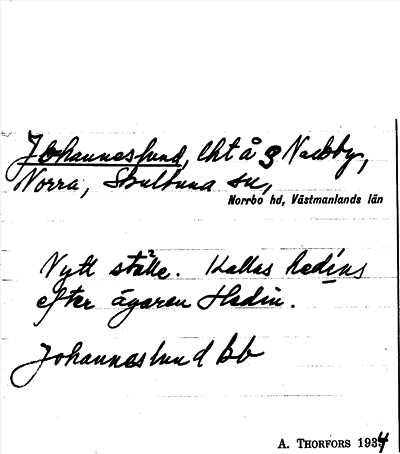 Johanneslund, lht å 3 Nackby,
Norra, Skultuna sn,
Norrbo hd, Västmanlands län
Nytt ställe. Kallas hedins
efter ägaren Hedin.
Johanneslund bb
A. THORFORS 1934